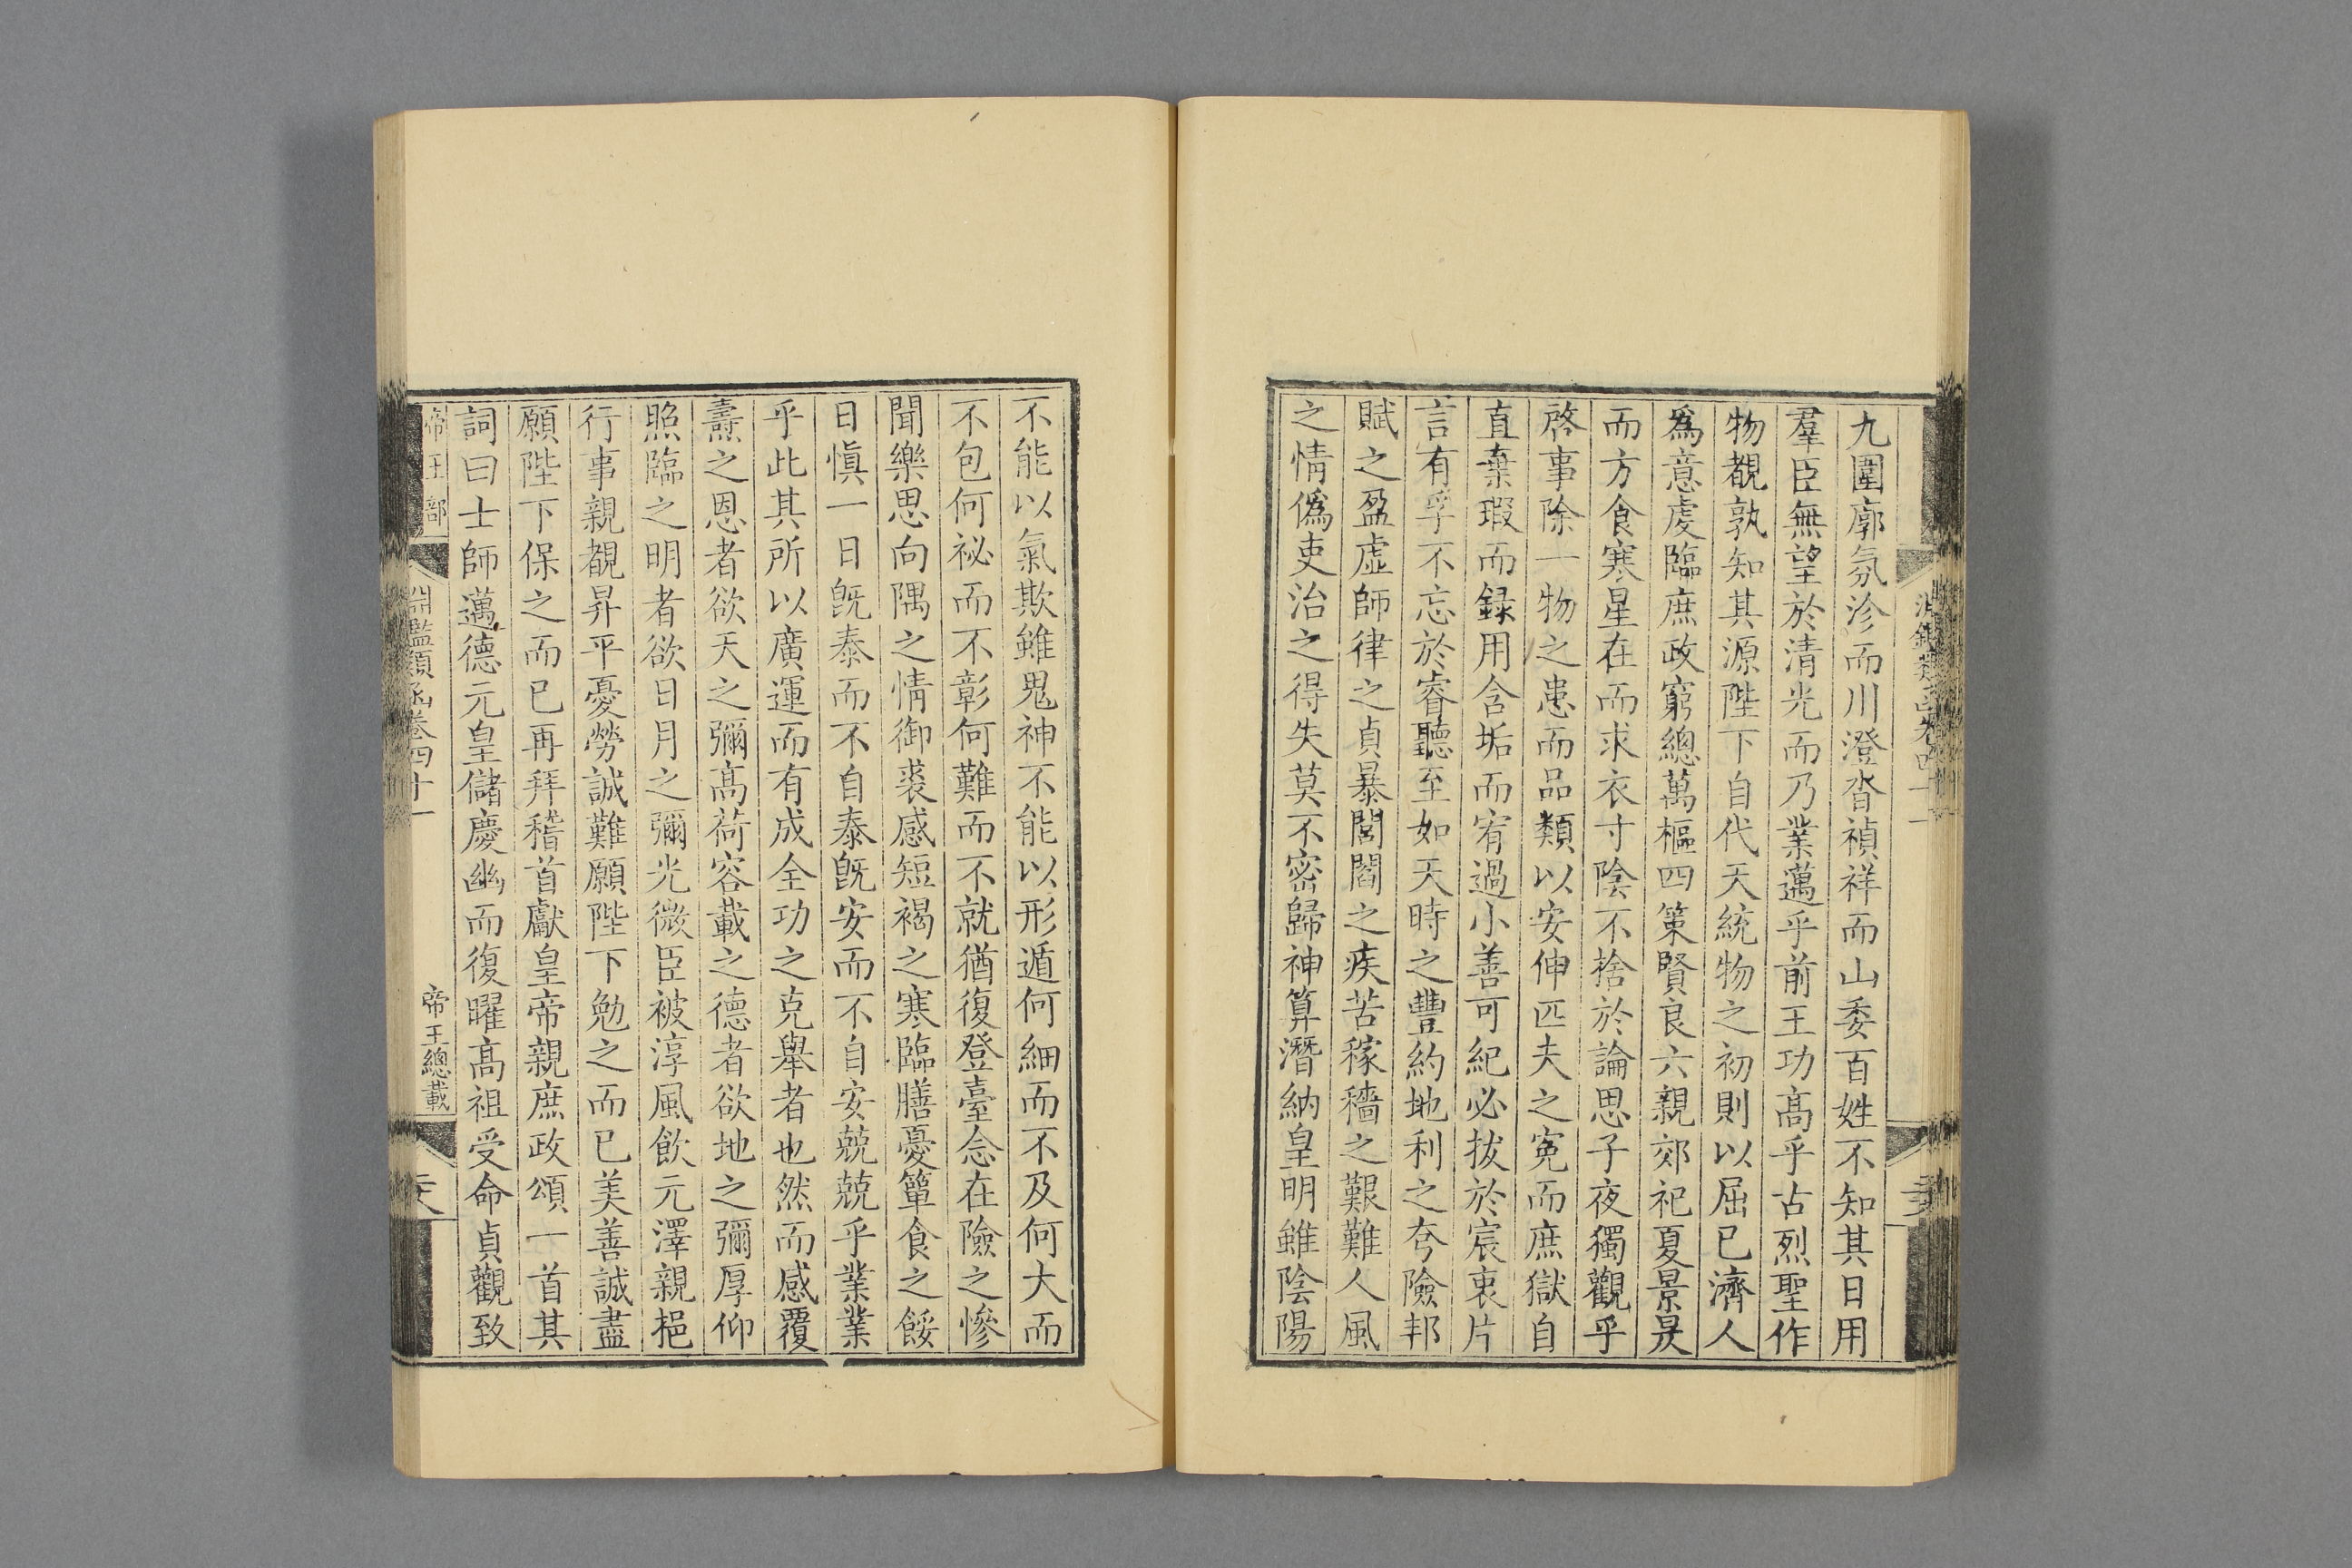 九圍廓氛沴而川澄沓禎祥而山委百姓不知其日用
羣臣無望於清光而乃業邁乎前王功高乎古烈聖作
物覩孰知其源陛下自代天統物之初則以屈已濟人
爲意虔臨庶政窮總萬樞四策賢良六親郊祀夏景昃
而方食寒星在而求衣寸陰不捨於論思子夜獨觀乎
啓事除一物之患而品類以安伸匹夫之寃而庶獄自
直棄瑕而録用含垢而宥過小善可紀必拔於宸衷片
言有孚不忘於睿聽至如天時之豐約地利之夸險邦
賦之盈虛師律之貞暴閭閻之疾苦稼穡之艱難人風
之情僞吏治之得失莫不密歸神算潛納皇明雖陰陽
不能以氣欺雖鬼神不能以形遁何細而不及何大而
不包何祕而不彰何難而不就猶復登臺念在險之慘
聞樂思向隅之情御裘感短褐之寒臨膳憂簞食之餒
日愼一日旣泰而不自泰旣安而不自安兢兢乎業業
乎此其所以廣運而有成全功之克舉者也然而感覆
燾之恩者欲天之彌高荷容載之德者欲地之彌厚仰
照臨之明者欲日月之彌光微臣被淳風飲元澤親挹
行事親覩昇平憂勞誠難願陛下勉之而已美善誠盡
願陛下保之而已再拜稽首獻皇帝親庶政頌一首其
詞曰士師邁德元皇儲慶幽而復曜高祖受命貞觀致
帝王部
淵鑑類函卷四十一
帝王總載